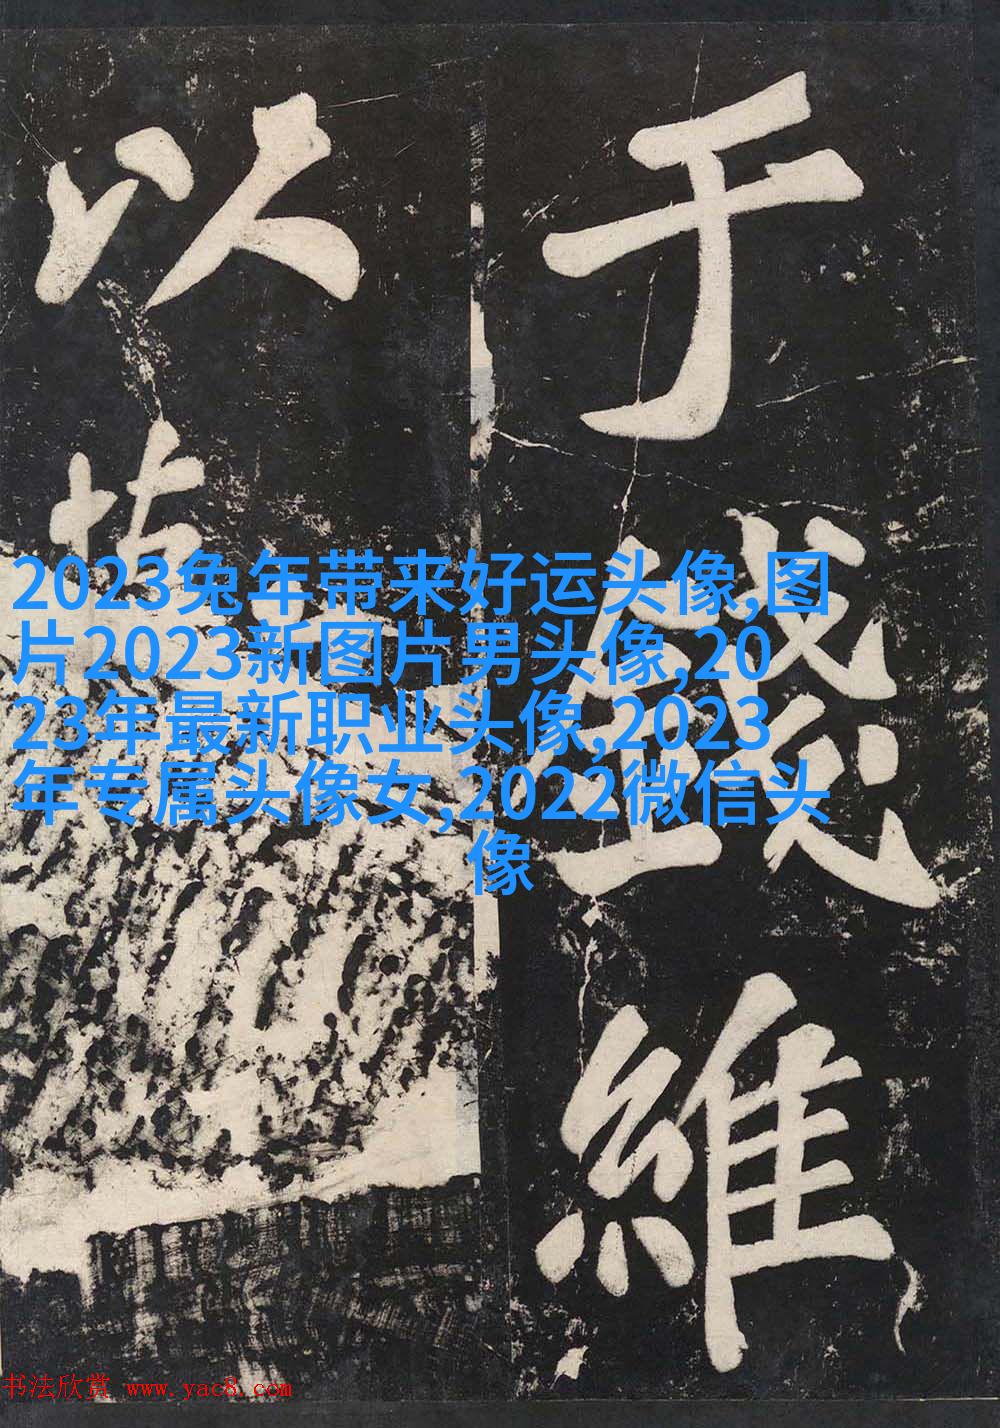 于錢維
以
2023兔年带来好运头像,图
片2023新图片男头像,20
23年最新职业头像,2023
年专属头像女,2022微信头
像
书法欣赏 www.yac8.com